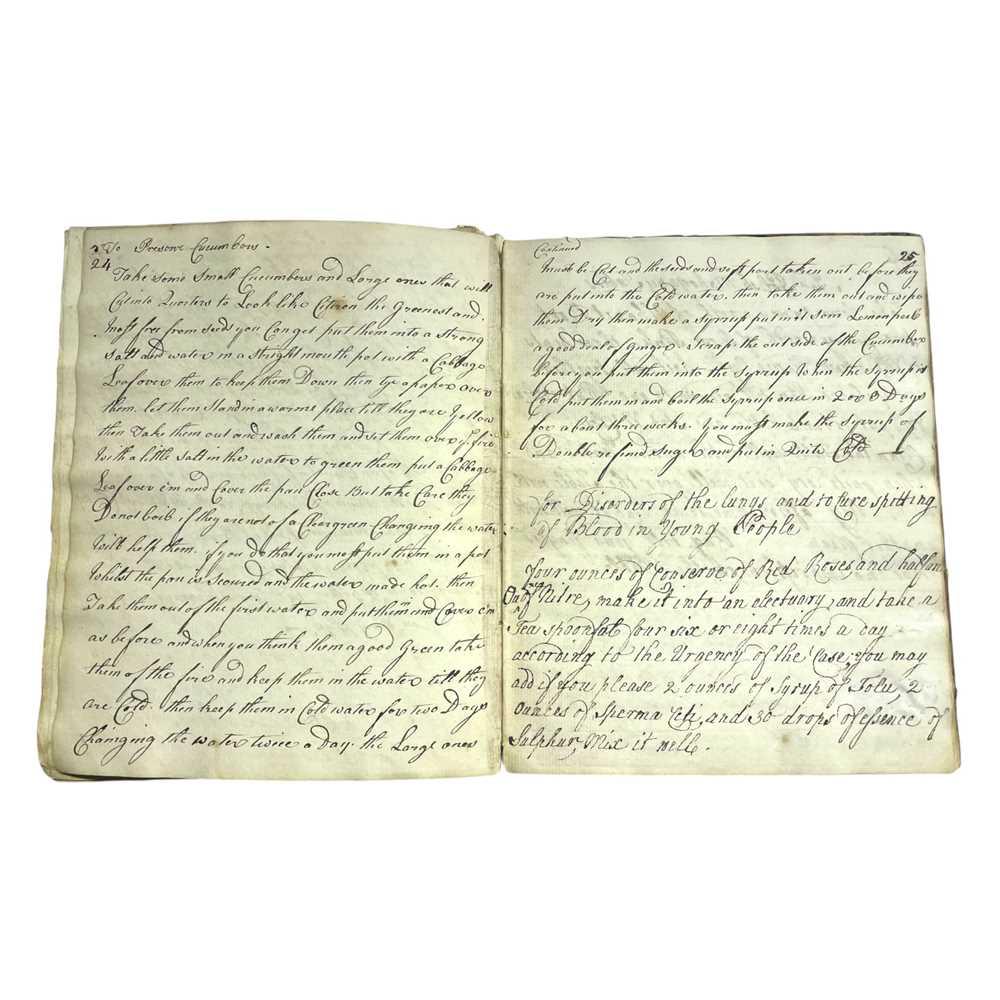 To Preserve Cucumbers.
24
Take Some Small Cucumbers and Large ones that will
Cut into Quorters to Look like Citeron the Greenest and
Most free from seeds you Can get put them into a strong
Salt and water in a streight mouth pot with a Cabbage
Leaf over them to keep them Down then tye a paper over
them. let them Stand in a warme place till they are Yellow
then Take them out and wash them and set them over ye fire
With a little salt in the water to green them put a Cabbage
Leaf over em and Cover the pan Close But take Care they
Do not boib if they are not of a Changing the water
Will help them. if you do that you most put them in a pot
Whilst the pan is Scoured and the water made hot. then
Take them out of the first water and put them in and Cover em
as before and when you think them a good Green take
them of the fire and keep them in the water till they
are Cold. then keep them in Cold water for two Days
Changing the water twice a Day. the Large ones
Continued
25
Must be Cut and the seeds and soft part taken out before they
are put into the Cold water. then take them out and wipe
them Dry then make a Syrrup put in it som Lemon peel
a good deale of Ginger Scrap the out side of the Cucumber
before you put them into the Syrrup When the Syrrup is
Cold put them in and boil the Syrrup once in 2 or 3 Days
for about three weeks. you must make the Syrrup of
Double refined Suger and put in Quite Cold
for Disorders of the lungs and to Cure spitting
of Blood in Young People
four ounces of Conserve of Red Roses, and half an
Ounce of Nitre, make it into an electuary, and take a
Tea spoonful four six or eight times a day
according to the Urgency of the Case; you may
add if you please 2 ounces of Syrup of Tolu, 2
Ounces of Sperma Ceti, and 30 drops of essence of
Sulphur, Mix it well.